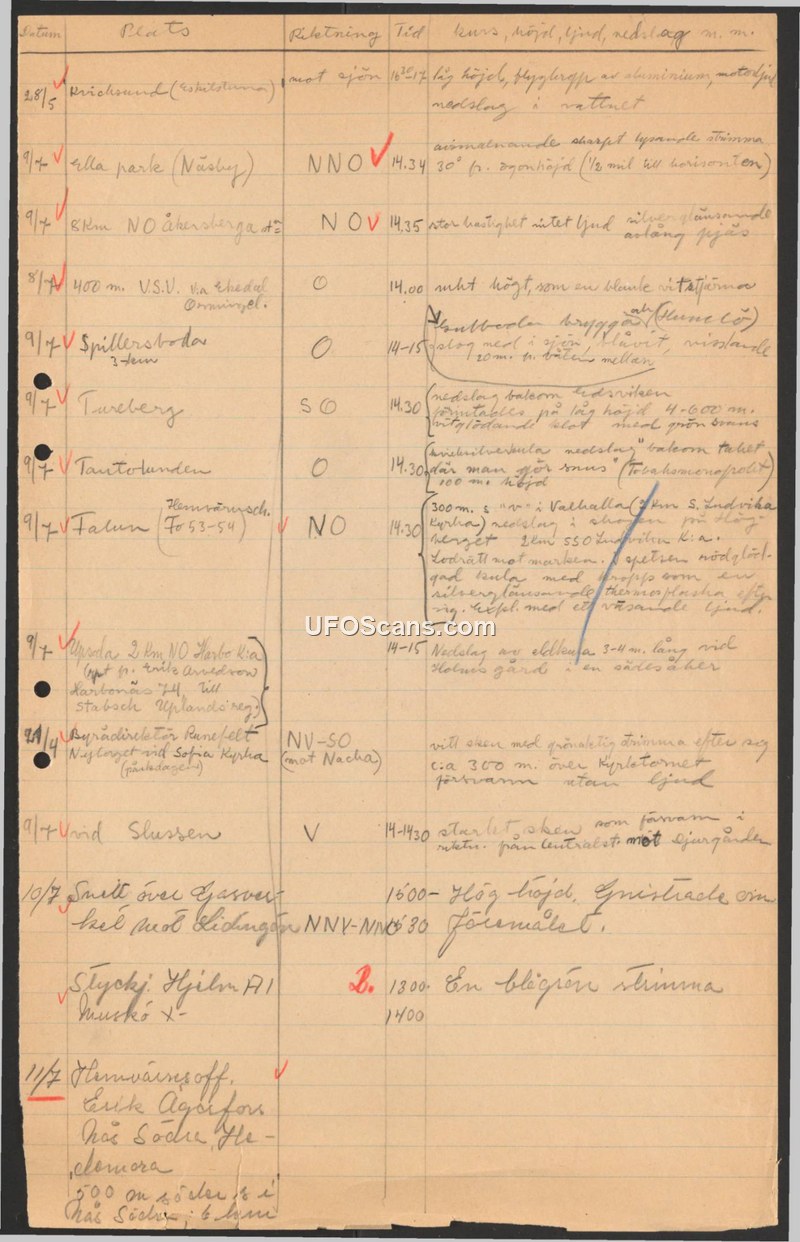 Datum Plats Riktning Tid kurs, höjd, ljud, nedslag m. m.
28/5 (Eskilstuna) mot sjön låg höjd, av aluminium,
nedslag i vattnet
9/7 Ella park (Näsby) NNO 14.34 skarpt lysande strimma
30° fr. ögonhöjd (½ mil till horisonten)
9/7 8 km NO Åkersberga NO 14.35 stor hastighet intet ljud silverglänsande
avlång pjäs
8/7 400 m. V.S.V. O 14.00 högt, som en blank vit stjärna
9/7 Spillersboda O 14-15 brygga
3-km slog ned i sjön, blåvit, visslande
20 m. fr. båten mellan
9/7 Tureberg SO 14.30 nedslag bakom Edsviken
på låg höjd 4-600 m.
vitglödande klot med grön svans
9/7 Tantolunden O 14.30 nedslag bakom taket
där man gör snus" (Tobaksmonopolet)
100 m. höjd
9/7 Falun (Hemvärnsch. NO 14.30 300 m. s "v" i Valhalla (7 km S. Ludvika
Fo 53-54) kyrka) nedslag i skogen på Hög-
berget 2 km SSO Ludvika K:a.
Lodrätt mot marken. I spetsen rödglöd-
gad kula med kropp som en
silverglänsande thermosflaska efter
sig. Expl. med ett väsande ljud.
UFOScans.com
9/7 2 km NO Harbo K:a 14-15 Nedslag av eldkula 3-4 m. lång vid
fr. Erik Arvedson Holms gård i en sädesåker
Harbonäs till
stabsch Uplands reg.)
Byrådirektör Runefelt NV-SO vitt sken med grönaktig strimma efter sig
vid Sofia Kyrka (mot Nacka) c:a 300 m. över Kyrktornet
(påskdagen) försvann utan ljud
9/7 vid Slussen V 14-1430 starkt sken som försvann i
riktn. från Centralst. mot Djurgården
10/7 Snett över Gasver- 1500- Hög höjd. Gnistrade om
ket mot Lidingön NNV-NNO 1530 föremålet.
Styckj. Hjelm A1 2. 1300- En blågrön strimma
Muskö X- 1400
11/7 Hemvärnsoff.
Erik Ågerfors
Nås Södra, He-
demora
500 m söder s i
Nås Södra, 6 km